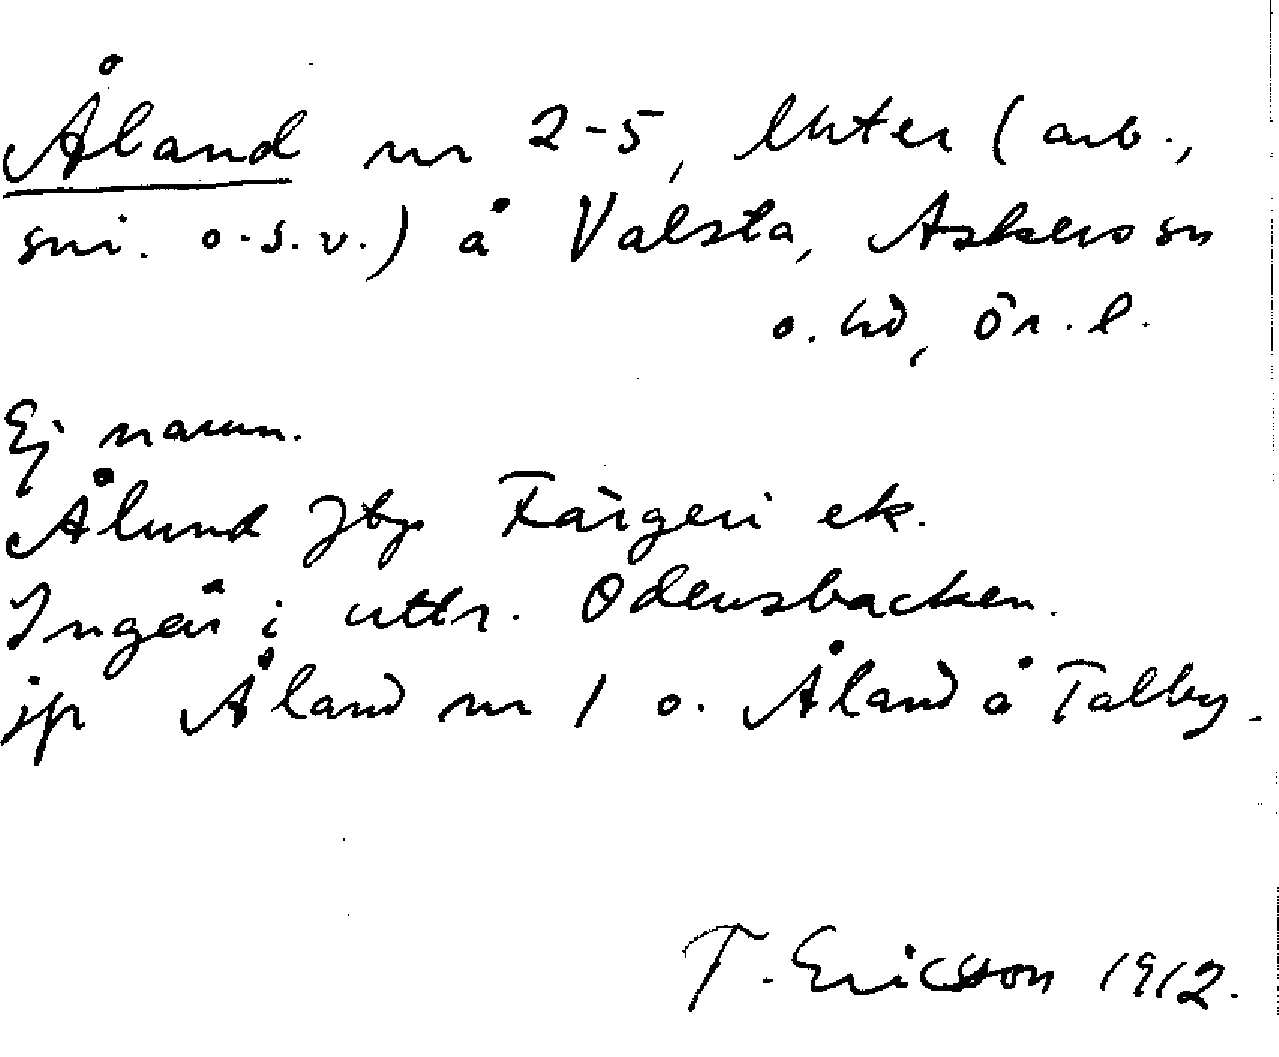 Åland nr 2-5, lhter (arb.,
sni. o.s.v.) å Valsta, Askers sn
o. hd, Ör. l.
Ej namn.
Ålund Jby Färgeri ek.
Ingår i uttr. Odensbacken.
jfr Åland nr 1 o. Åland å Talby.
T. Ericsson 1912.